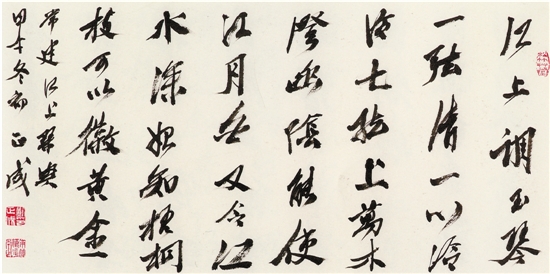 江上調玉琴
一弦清一心泠
泠七弦上萬木
澄幽陰能使
江月白又令江
水深始知梧桐
枝可以徽黃金
常建江上琴興
甲午冬初正成